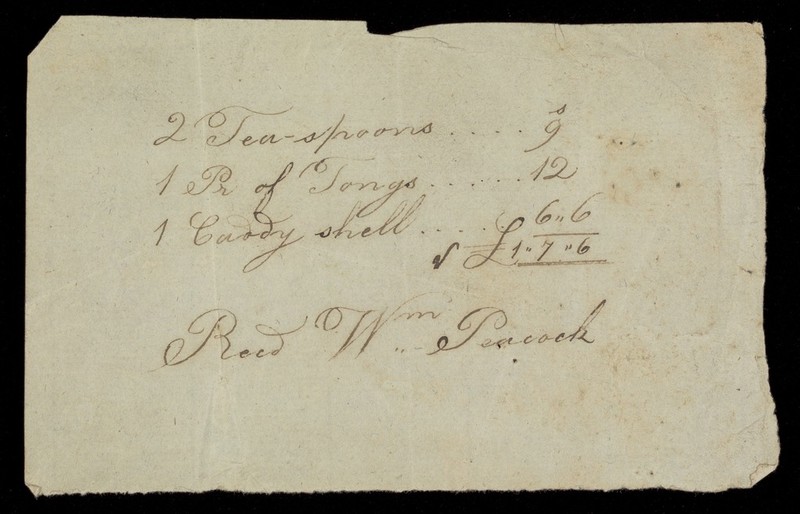 2 Tea-spoons .... 9s
1 Pr of Tongs ...... 12
1 Caddy shell .... 6 „ 6
£ 1 „ 7 „ 6
Recd Wm Peacock